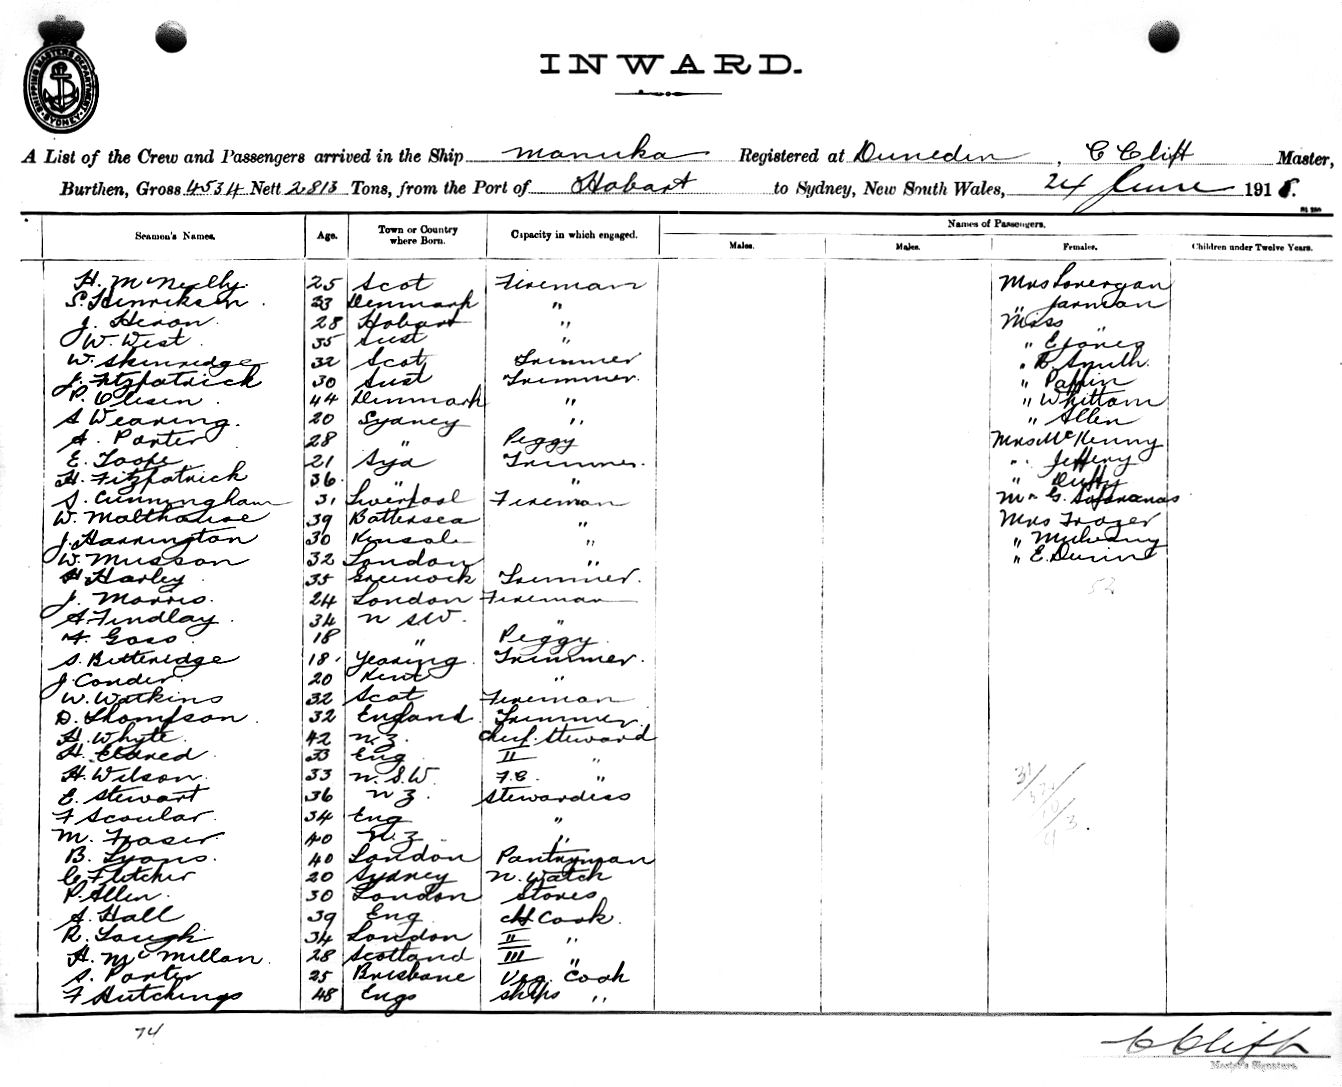 SHIPPING MASTERS DEPARTMENT SYDNEY
INWARD.
A List of the Crew and Passengers arrived in the Ship Manuka Registered at Dunedin, C Clift Master,
Burthen, Gross 4534 Nett 2813 Tons, from the Port of Hobart to Sydney, New South Wales, 24 June 1918.
Names of Passengers.
Seamen's Names. Age. Town or Country where Born. Capacity in which engaged. Males. Males. Females. Children under Twelve Years.
H. McNeilly 25 Scot Fireman Mrs Lonergan
S. Henriksen 33 Denmark " " Jarman
J. Heron 28 Hobart " Miss "
W. West 35 Aust " " E Jones
W. Skinridge 32 Scot Trimmer " B. Smith
J. Fitzpatrick 30 Aust Trimmer " Paffin
P. Olesen 44 Denmark " " Whittam
S Wearing 20 Sydney " " Allen
A. Porter 28 " Peggy Mrs McKenny
E. Toope 21 Syd Trimmer " Jeffery
H. Fitzpatrick 36 " " " Duffy
S. Cunningham 31 Liverpool Fireman Mr G.
W. Malthouse 39 Battersea " Mrs Frazer
J. Harrington 30 Kinsale "
W. Musson 32 London " " E. Dunn
H. Harley 35 Greenock Trimmer 52
J. Morris 24 London Fireman
A. Findlay 34 N S.W. "
F. Goss 18 " Peggy
S. Betteridge 18 Trimmer
J. Conder 20 Kent "
W. Watkins 32 Scot Fireman
D. Thompson 32 England Trimmer
H. Whyte 42 N.Z. Chief Steward
H. Eldred 33 Eng II "
H. Wilson 33 N.S.W. F.C. "
E. Stewart 36 N Z. Stewardess
F Scoular 34 Eng "
M. Fraser 40 N.Z. "
B. Lyons 40 London Pantryman
C. Fletcher 20 Sydney N. Watch
P. Allen 30 London Stores
A. Hall 39 Eng Ch Cook
R. Gough 34 London II "
H. McMillan 28 Scotland III "
S. Porter 25 Brisbane Veg. Cook
F Hutchings 48 Eng Ships "
74
C Clift
Master's Signature.